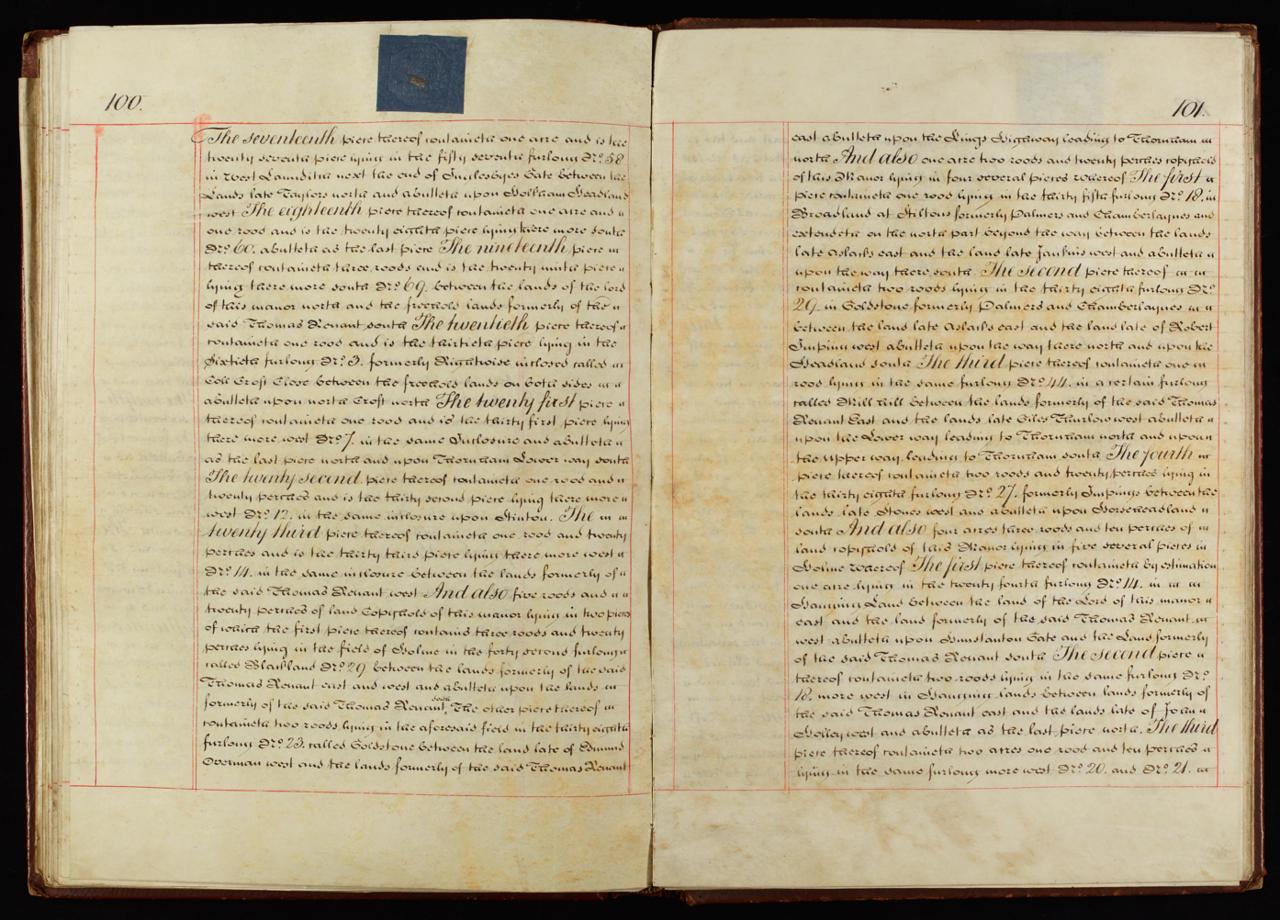 100.
The seventeenth piece thereof containeth one acre and is the
twenty seventh piece lying in the fifty seventh furlong No. 58
in West Launditch next the end of Gate between the
Lands late Taylors north and abutteth upon Holkham Headland
west The eighteenth piece thereof containeth one acre and
one rood and is the twenty eighth piece lying there more south
No. 60. abutteth as the last piece The nineteenth piece
thereof containeth three roods and is the twenty ninth piece
lying there more south No. 69. between the lands of the lord
of this manor north and the freehold lands formerly of the
said Thomas Renant south The twentieth piece thereof
containeth one rood and is the thirtieth piece lying in the
Sixtieth furlong No. 3. formerly Rightwise inclosed called
Coll Cross Close between the freehold lands on both sides
abutteth upon north Croft north The twenty first piece
thereof containeth one rood and is the thirty first piece lying
there more west No. 7. in the same Inclosure and abutteth
as the last piece north and upon Thornham Lower way south
The twenty second piece thereof containeth one rood and
twenty perches and is the thirty second piece lying there more
west No. 12. in the same inclosure upon Hinton. The
twenty third piece thereof containeth one rood and twenty
perches and is the thirty third piece lying there more west
No. 14. in the same inclosure between the lands formerly of
the said Thomas Renant west And also five roods and
twenty perches of land Copyhold of this manor lying in two pieces
of which the first piece thereof contains three roods and twenty
perches lying in the field of Holme in the forty second furlong
called Blackland No. 29. between the lands formerly of the said
Thomas Renant east and west and abutteth upon the lands
formerly of the said Thomas Renant south. The other piece thereof
containeth two roods lying in the aforesaid field in the thirty eighth
furlong No. 23. called Goldstone between the land late of Edmund
Overman west and the lands formerly of the said Thomas Renant
101.
east abutteth upon the Kings Highway leading to Thornham
north And also one acre two roods and twenty perches copyhold
of this Manor lying in four several pieces whereof The first
piece containeth one rood lying in the thirty fifth furlong No. 18. in
Broadland at Hiltons formerly Palmers and Chamberlaynes and
extendeth on the north part beyond the way between the lands
late Aslacks east and the land late Jankins west and abutteth
upon the way there south. The second piece thereof
containeth two roods lying in the thirty eighth furlong No.
29. in Goldstone formerly Palmers and Chamberlaynes
between the land late Aslacks east and the land late of Robert
Imping west abutteth upon the way there north and upon the
Headland south The third piece thereof containeth one
rood lying in the same furlong No. 44. in a certain furlong
called Mill Hill between the lands formerly of the said Thomas
Renant East and the lands late Giles Thurlow west abutteth
upon the Lower way leading to Thornham north and upon
the upper way leading to Thornham south The fourth
piece thereof containeth two roods and twenty perches lying in
the thirty eighth furlong No. 27. formerly Impings between the
lands late Stones west and abutteth upon Gorseheadland
south And also four acres three roods and ten perches of
land copyhold of this Manor lying in five several pieces in
Holme whereof The first piece thereof containeth by estimation
one acre lying in the twenty fourth furlong No. 14. in
Hanging Land between the land of the Lord of this manor
east and the land formerly of the said Thomas Renant
west abutteth upon Hunstanton Gate and the Land formerly
of the said Thomas Renant south The second piece
thereof containeth two roods lying in the same furlong No.
18. more west in Hanging lands between lands formerly of
the said Thomas Renant east and the lands late of John
Holley west and abutteth as the last piece north. The third
piece thereof containeth two acres one rood and ten perches
lying in the same furlong more west No. 20. and No. 21.